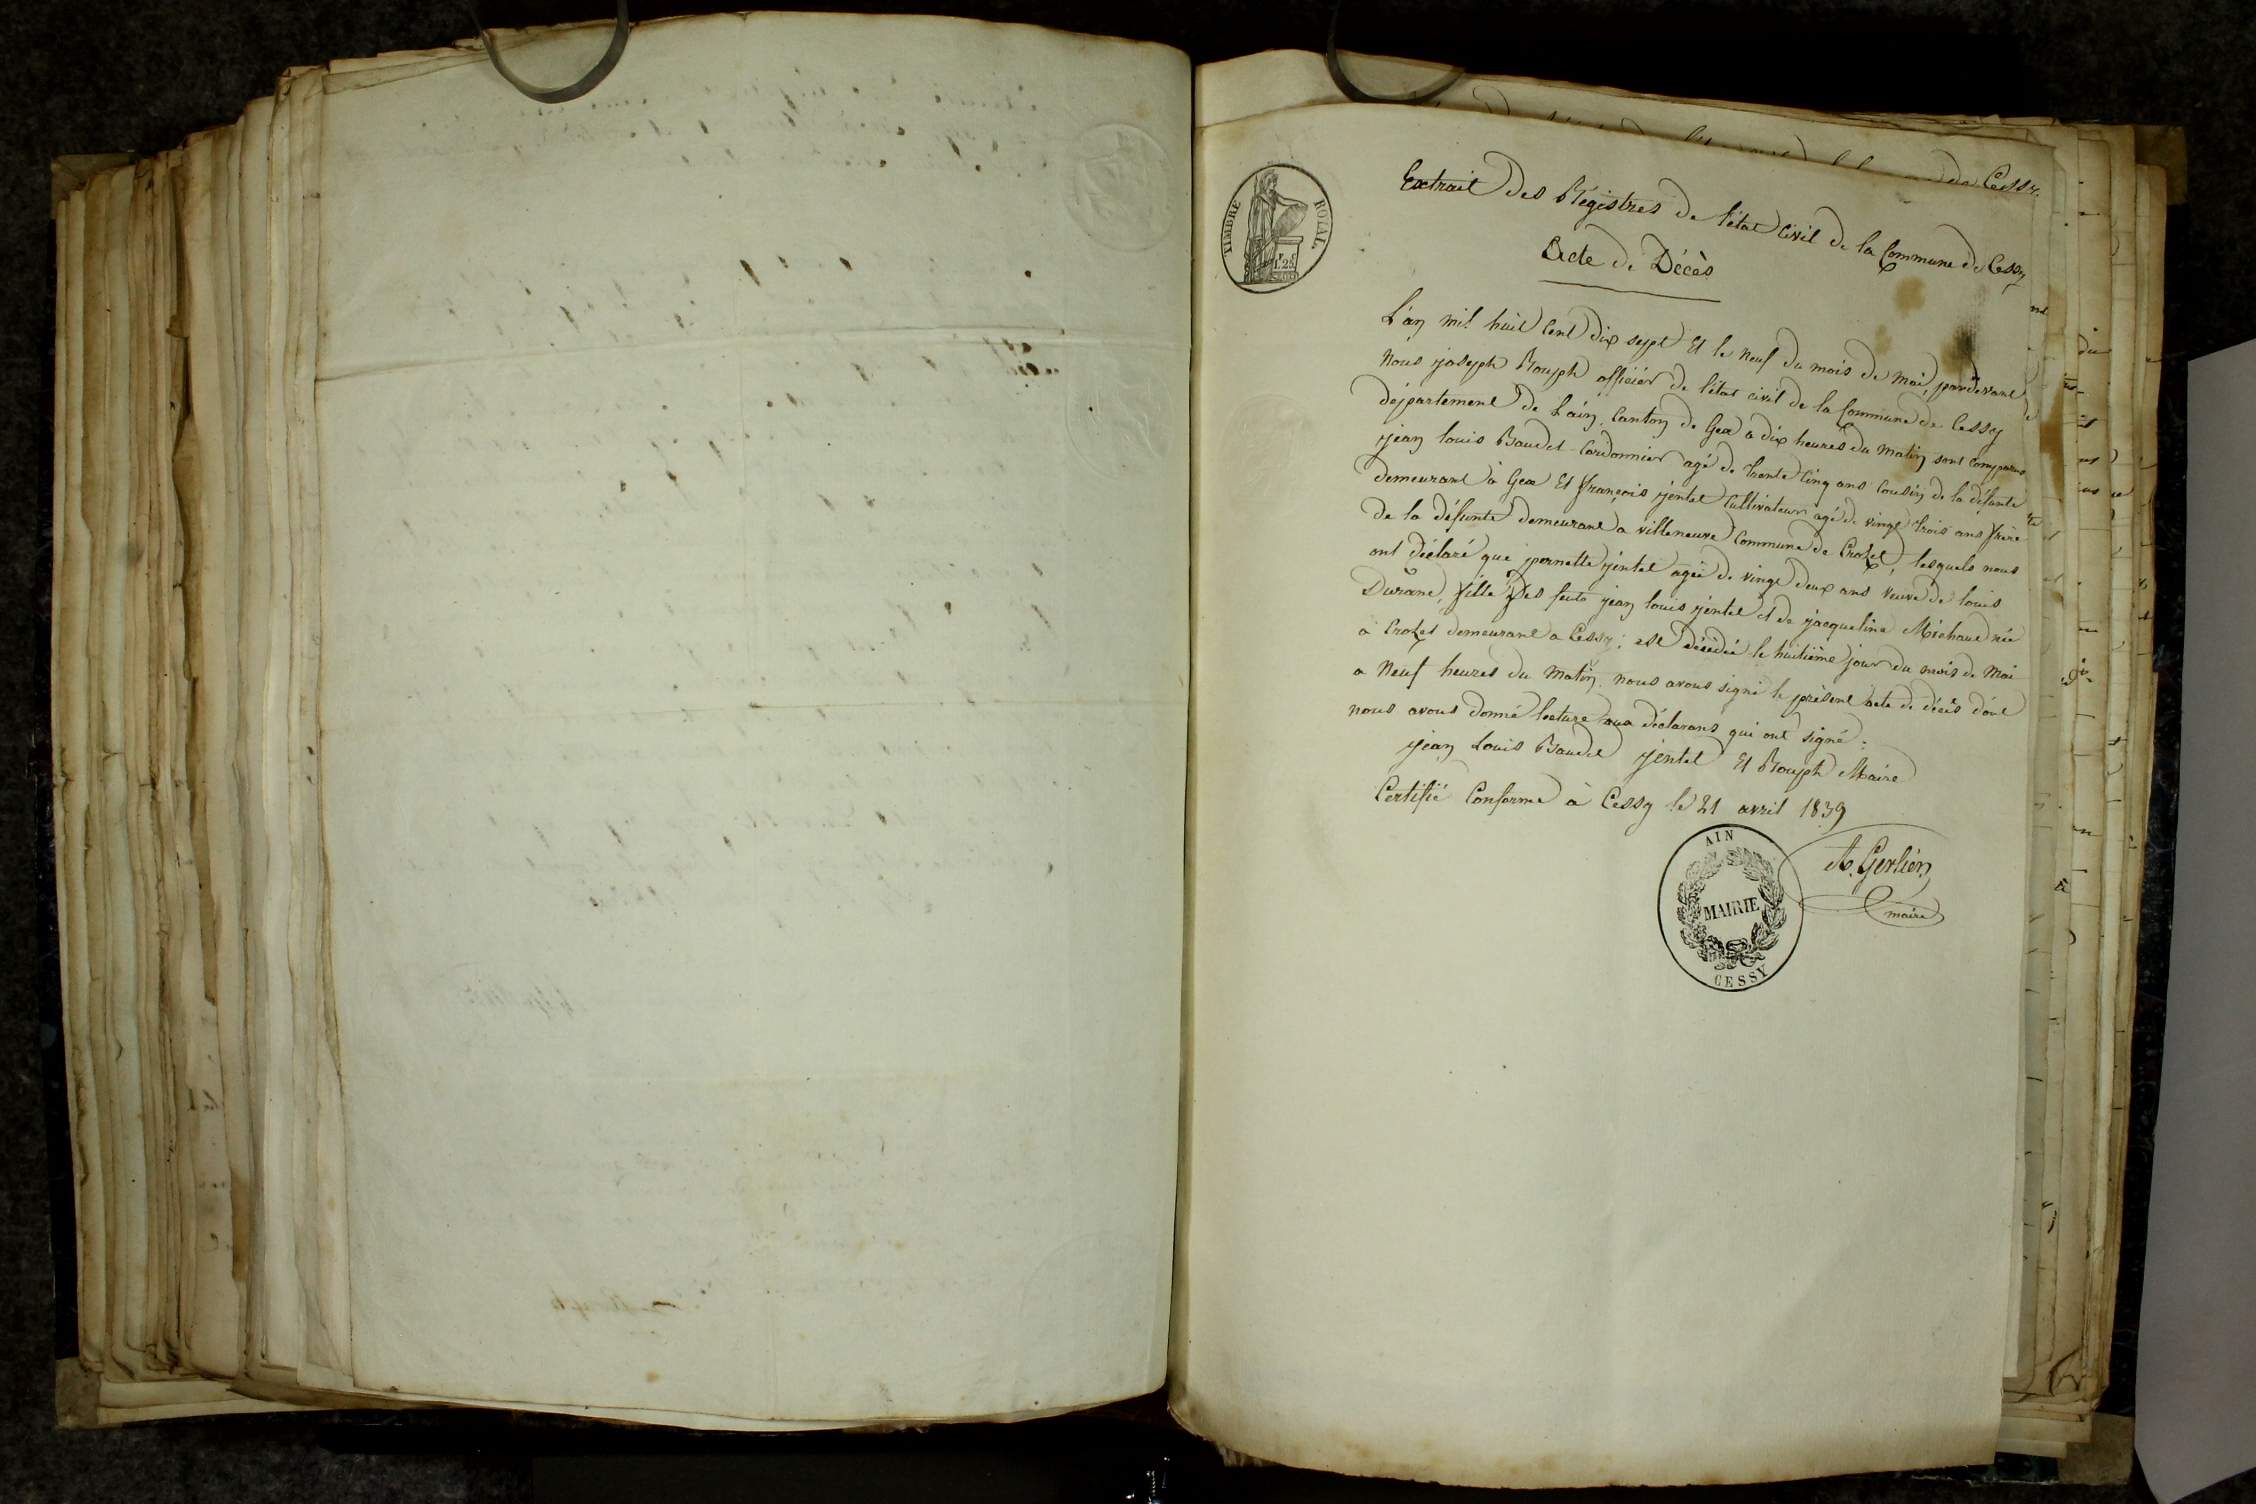 TIMBRE ROYAL
1.25
Extrait des Régistres de l'état civil de la Commune de Cessy
Acte de Décès
L'an mil huit cent dix sept Et le neuf du mois de mai, pardevant
nous joseph Rouph officier de l'état civil de la Commune de Cessy
département de L'ain, Canton de Gex a dix heures du matin sont comparus
jean louis Baudet Cordonnier agé de trente cinq ans Cousin de la défunte
demeurant à Gex Et françois jentet Cultivateur agé de vingt trois ans frère
de la défunte demeurant a villeneuve Commune de Crozet, lesquels nous
ont déclaré que pernette jentet agée de vingt deux ans veuve de louis
Durane, fille des feuts jean louis jentet et de jacqueline Michaud née
a Crozet demeurant a Cessy; est décédée le huitième jour du mois de Mai
a Neuf heures du Matin. nous avons signé le présent acte de décès dont
nous avons donné lecture aux déclarans qui ont signé:
jean Louis Baudet jentet Et Rouph Maire
Certifié Conforme à Cessy le 21 avril 1839
A. Gerlier
maire
AIN
MAIRIE
CESSY